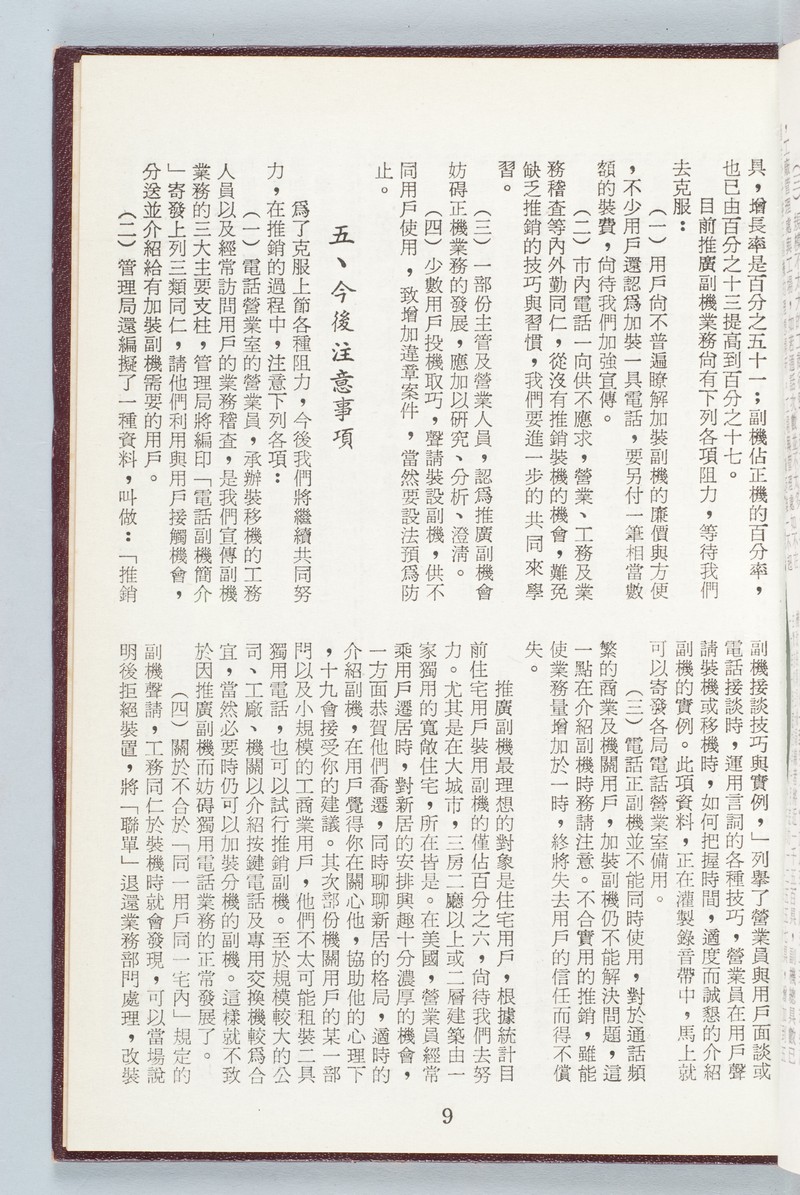 具，增長率是百分之五十一；副機佔正機的百分率，
也已由百分之十三提高到百分之十七。
目前推廣副機業務尙有下列各項阻力，等待我們
去克服：
（一）用戶尙不普遍瞭解加裝副機的廉價與方便
，不少用戶還認爲加裝一具電話，要另付一筆相當數
額的裝費，尙待我們加強宣傳。
（二）市內電話一向供不應求，營業、工務及業
務稽查等內外勤同仁，從沒有推銷裝機的機會，難免
缺乏推銷的技巧與習慣，我們要進一步的共同來學
習。
（三）一部份主管及營業人員，認爲推廣副機會
妨碍正機業務的發展，應加以研究、分析、澄淸。
（四）少數用戶投機取巧，聲請裝設副機，供不
同用戶使用，致增加違章案件，當然要設法預爲防
止。
五、今後注意事項
爲了克服上節各種阻力，今後我們將繼續共同努
力，在推銷的過程中，注意下列各項：
（一）電話營業室的營業員，承辦裝移機的工務
人員以及經常訪問用戶的業務稽查，是我們宣傳副機
業務的三大主要支柱，管理局將編印「電話副機簡介
」寄發上列三類同仁，請他們利用與用戶接觸機會，
分送並介紹給有加裝副機需要的用戶。
（二）管理局還編擬了一種資料，叫做：「推銷
副機接談技巧與實例，」列擧了營業員與用戶面談或
電話接談時，運用言詞的各種技巧，營業員在用戶聲
請裝機或移機時，如何把握時間，適度而誠懇的介紹
副機的實例。此項資料，正在灌製錄音帶中，馬上就
可以寄發各局電話營業室備用。
（三）電話正副機並不能同時使用，對於通話頻
繁的商業及機關用戶，加裝副機仍不能解決問題，這
一點在介紹副機時務請注意。不合實用的推銷，雖能
使業務量增加於一時，終將失去用戶的信任而得不償
失。
推廣副機最理想的對象是住宅用戶，根據統計目
前住宅用戶裝用副機的僅佔百分之六，尙待我們去努
力。尤其是在大城市，三房二廳以上或二層建築由一
家獨用的寬敞住宅，所在皆是。在美國，營業員經常
乘用戶遷居時，對新居的安排興趣十分濃厚的機會，
一方面恭賀他們喬遷，同時聊聊新居的格局，適時的
介紹副機，在用戶覺得你在關心他，協助他的心理下
，十九會接受你的建議。其次部份機關用戶的某一部
門以及小規模的工商業用戶，他們不太可能租裝二具
獨用電話，也可以試行推銷副機。至於規模較大的公
司、工廠、機關以介紹按鍵電話及專用交換機較爲合
宜，當然必要時仍可以加裝分機的副機。這樣就不致
於因推廣副機而妨碍獨用電話業務的正常發展了。
（四）關於不合於「同一用戶同一宅內」規定的
副機聲請，工務同仁於裝機時就會發現，可以當場說
明後拒絕裝置，將「聯單」退還業務部門處理，改裝
9